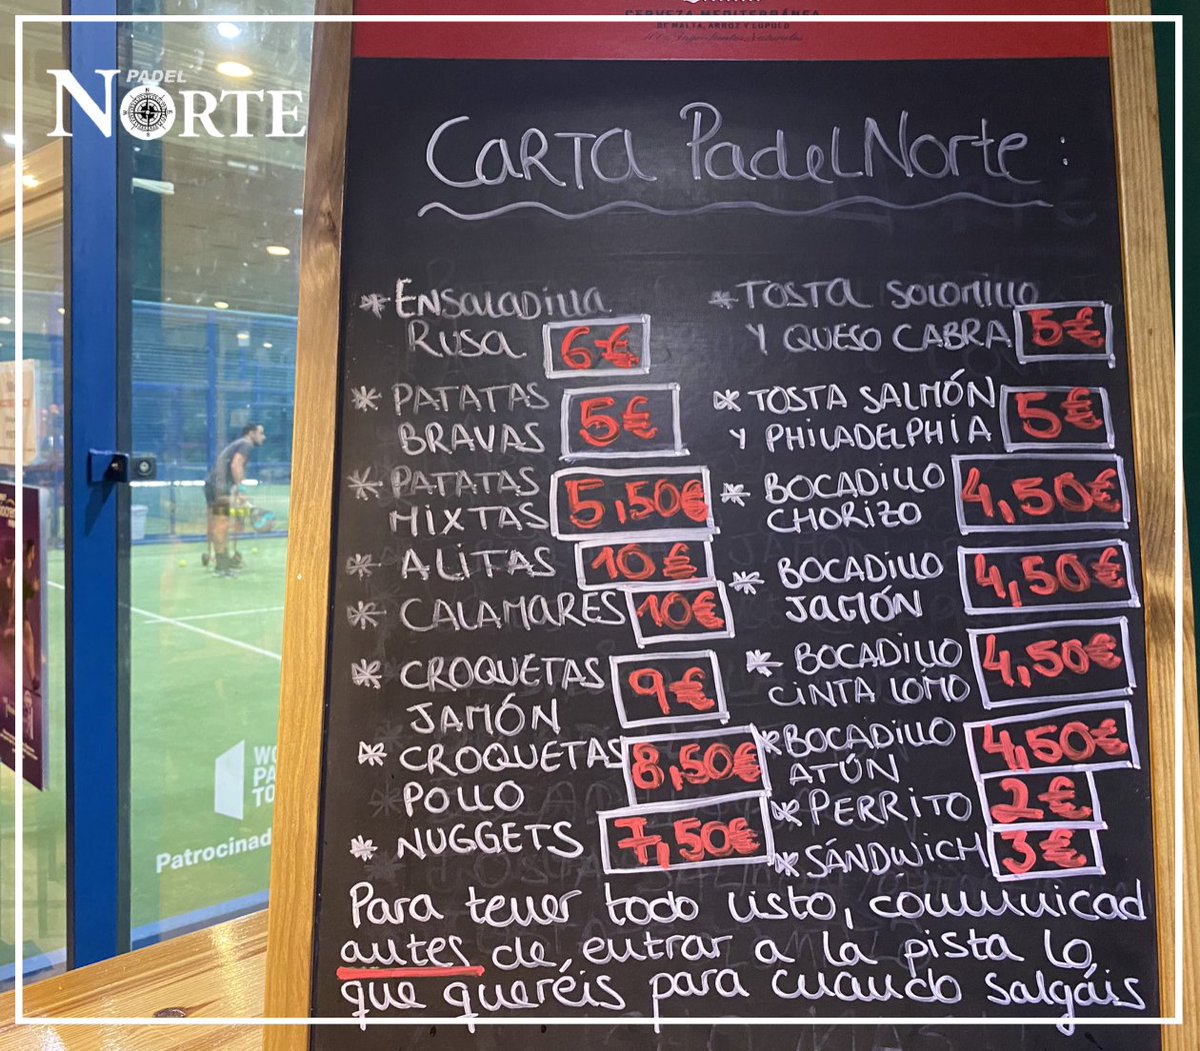 CERVEZA MEDITERRÁNEA
DE MALTA, ARROZ Y LÚPULO
PADEL
NORTE
CARTA Padel Norte:
* ENSALADILLA
RUSA 6€
* PATATAS
BRAVAS 5€
* PATATAS
MIXTAS 5,50€
* ALITAS 10€
* CALAMARES 10€
* CROQUETAS
JAMÓN 9€
* CROQUETAS
POLLO 8,50€
* NUGGETS 7,50€
* TOSTA SOLOMILLO
Y QUESO CABRA 5€
* TOSTA SALMÓN
Y PHILADELPHIA 5€
* BOCADILLO
CHORIZO 4,50€
* BOCADILLO
JAMÓN 4,50€
* BOCADILLO
CINTA LOMO 4,50€
* BOCADILLO
ATÚN 4,50€
* PERRITO 2€
* SÁNDWICH 3€
Para tener todo listo, comunicad
antes de entrar a la pista lo
que queréis para cuando salgáis
WO
PA
TO
Patrocinad